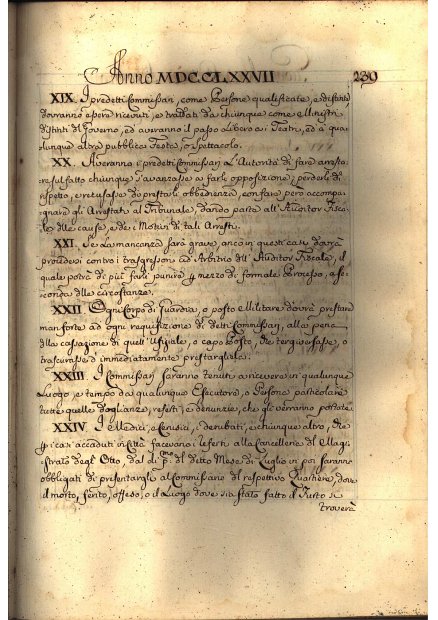 Anno MDCCLXXVII 239
XIX. I predetti Commissarj, come Persone qualificate, e distinte
dovranno essere ricevuti, e trattati da chiunque come Ministri
distinti del Governo, ed averanno il passo libero a i Teatri, ed a qua-
lunque altra pubblica Festa, o Spettacolo.
XX. Averanno i predetti Commissarj l'Autorità di fare arresta-
re sul fatto chiunque s'avanzasse a farli opposizione, perderli il ri-
spetto, e recusasse di prestarli obbedienza, con fare però accompa-
gnare gli Arrestati al Tribunale, dando parte all'Auditor Fisca-
le delle cause, e de i Motivi di tali Arresti.
XXI. Se la mancanza sarà grave, anco in questi casi dovrà
procedersi contro i trasgressori ad Arbitrio dell'Auditor Fiscale, il
quale potrà di più farli punire per mezzo di formale Processo, a se-
conda delle circostanze.
XXII. Ogni Corpo di Guardia, o posto Militare dovrà prestare
man forte ad ogni requisizione di detti Commissarj, alla pena
della cassazione di quell'Ufiziale, o capo Posto, che tergiversasse, o
trascurasse d'immediatamente prestargliela.
XXIII. I Commissarj saranno tenuti a ricevere in qualunque
Luogo, e tempo da qualunque Esecutore, o Persona particolare
tutte quelle doglianze, referti, e denunzie, che gli verranno portate.
XXIV. I Medici, e Cerusici, i derubati, e chiunque altro, che
per i casi accaduti in Città facevano i referti alla Cancelleria del Magi-
strato degl'Otto, dal dì p.mo del detto Mese di Luglio in poi saranno
obbligati di presentargli al Commissario del respettivo Quartiere, dove
il morto, ferito, offeso, o il Luogo dove sia stato fatto il Furto si
troverà